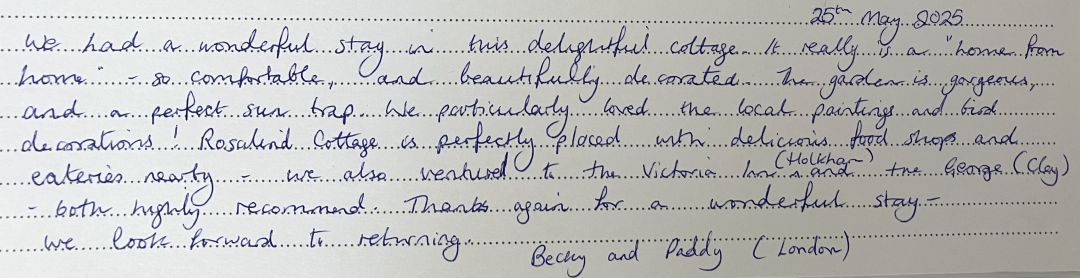 25th May 2025
We had a wonderful stay in this delightful cottage. It really is a "home from
home" - so comfortable, and beautifully decorated. The garden is gorgeous,
and a perfect sun trap. We particularly loved the local paintings and bird
decorations! Rosalind Cottage is perfectly placed with delicious food shops and
eateries nearby - we also ventured to the Victoria Inn (Holkham) and the George (Clay)
- both highly recommend. Thanks again for a wonderful stay -
we look forward to returning.
Becky and Paddy (London)